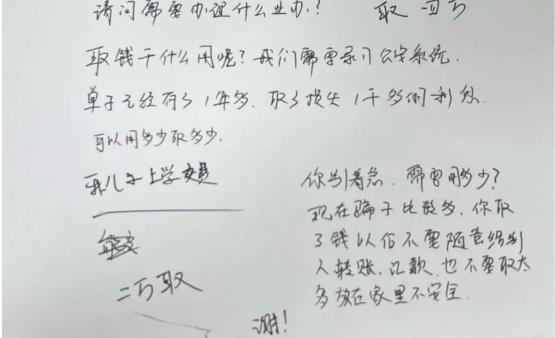 请问需要办理什么业办？ 取 四万
取钱干什么用呢？我们需要录入公安系统.
单子已经有了1年多.取了损失1千多的利息.
可以用多少取多少.
我儿子上学交费
你别着急.需要用多少？
现在骗子比较多.你取
了钱以后不要随意给别
人转账、汇款.也不要取太
多放在家里不安全.
二万取
谢！